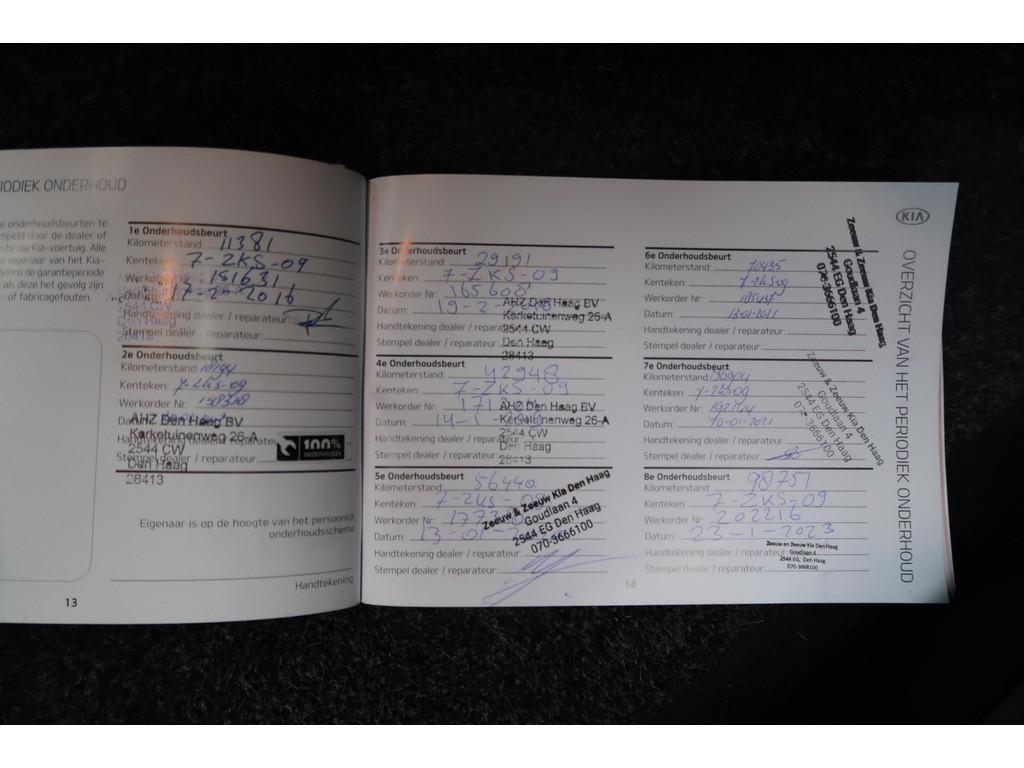 IODIEK ONDERHOUD
e onderhoudsbeurten te
mpeld door de dealer of
n bij uw Kia-voertuig. Alle
e eigenaar van het Kia-
ijdens de garantieperiode
als deze het gevolg zijn
- of fabricagefouten.
1e Onderhoudsbeurt
Kilometerstand 11381
Kenteken 7-ZKS-09
Werkorder 151631
Datum 17-2-2016
Handtekening dealer / reparateur
Den Haag
Stempel dealer / reparateur
28413
2e Onderhoudsbeurt
Kilometerstand
Kenteken: 7-ZKS-09
Werkorder Nr: 158328
Datum
AHZ Den Haag BV
Kerketuinenweg 26-A
2544 CW
Den Haag
28413
Handtekening dealer / reparateur
Stempel dealer / reparateur
100%
ONDERHOUDEN
Eigenaar is op de hoogte van het persoonlijk
onderhoudsschema
Handtekening
13
3e Onderhoudsbeurt
Kilometerstand: 29191
Kenteken: 7-ZKS-09
Werkorder Nr: 165608
Datum: 19-2-
Handtekening dealer / reparateur
Stempel dealer / reparateur
AHZ Den Haag BV
Kerketuinenweg 26-A
2544 CW
Den Haag
28413
4e Onderhoudsbeurt
Kilometerstand: 42948
Kenteken: 7-ZKS-09
Werkorder Nr:
Datum: 14-1-
Handtekening dealer / reparateur
Stempel dealer / reparateur
AHZ Den Haag BV
Kerketuinenweg 26-A
2544 CW
Den Haag
28413
5e Onderhoudsbeurt
Kilometerstand: 56440
Kenteken: 7-ZKS-09
Werkorder Nr:
Datum: 13-01-
Handtekening dealer / reparateur:
Stempel dealer / reparateur:
Zeeuw & Zeeuw Kia Den Haag
Goudlaan 4
2544 EG Den Haag
070-3666100
14
6e Onderhoudsbeurt
Kilometerstand: 70435
Kenteken: 7-ZKS09
Werkorder Nr:
Datum: 13-01-2021
Handtekening dealer / reparateur:
Stempel dealer / reparateur:
Zeeuw & Zeeuw Kia Den Haag
Goudlaan 4
2544 EG Den Haag
070-3666100
7e Onderhoudsbeurt
Kilometerstand:
Kenteken: 7-ZKS09
Werkorder Nr:
Datum: 10-01-2021
Handtekening dealer / reparateur:
Stempel dealer / reparateur:
Zeeuw & Zeeuw Kia Den Haag
Goudlaan 4
2544 EG Den Haag
070-3666100
8e Onderhoudsbeurt
Kilometerstand: 98751
Kenteken: 7-ZKS-09
Werkorder Nr: 202216
Datum: 23-1-2023
Handtekening dealer / reparateur:
Stempel dealer / reparateur:
Zeeuw en Zeeuw Kia Den Haag
Goudlaan 4
2544 EG, Den Haag
070-3666100
KIA
OVERZICHT VAN HET PERIODIEK ONDERHOUD